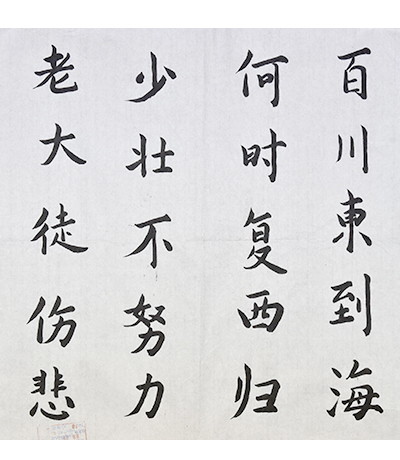 百川東到海
何时复西归
少壮不努力
老大徒伤悲